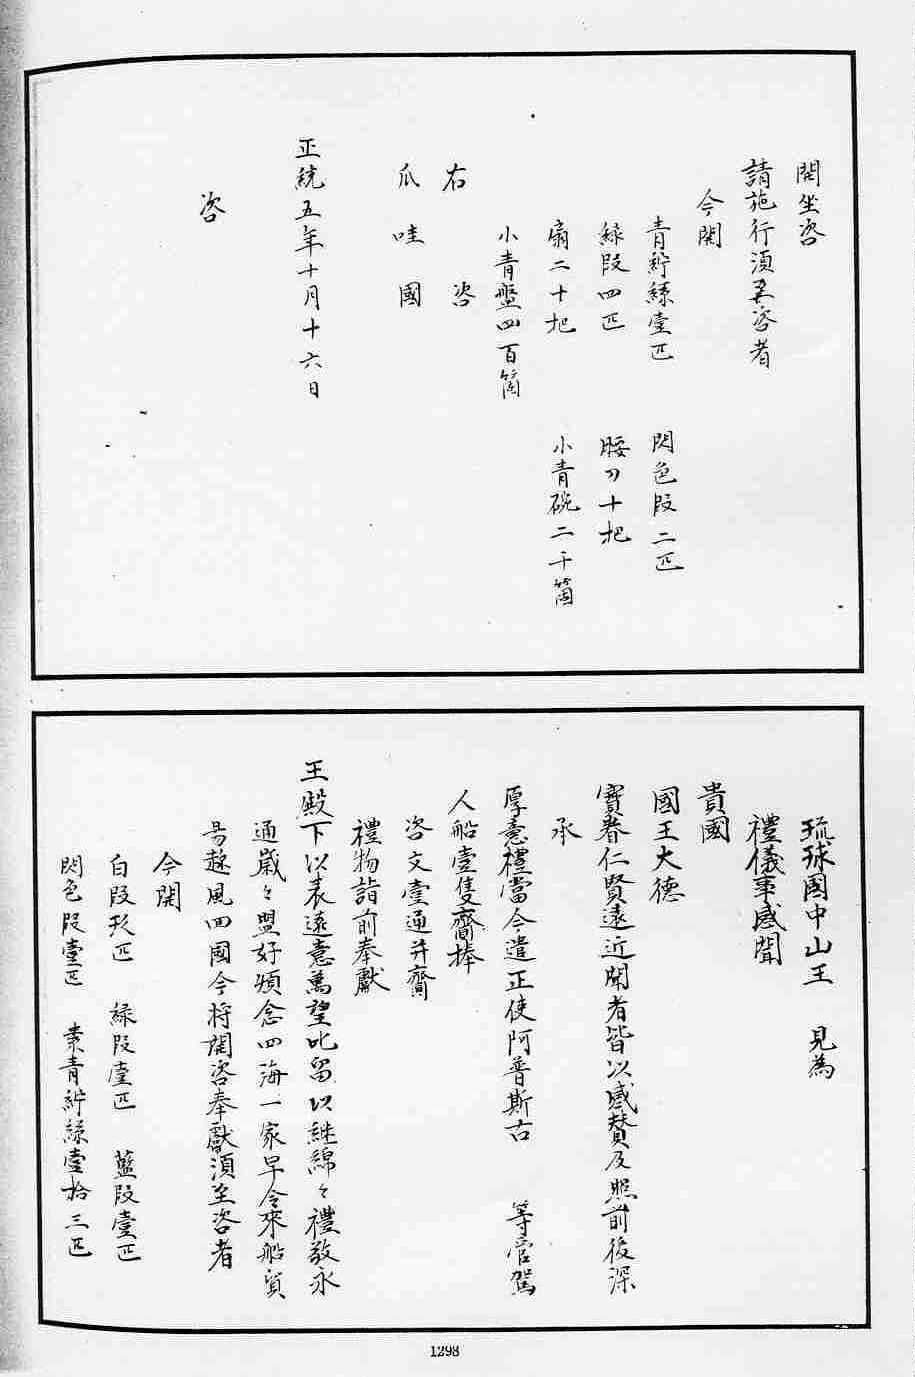 開坐咨
請施行須至咨者
今開
青紵絲壹匹　閃色段二匹
綠段四匹　腰刀十把
扇二十把　小青碗二千箇
小青盤四百箇
右咨
爪哇國
正統五年十月十六日
咨
琉球國中山王　見為
禮儀事感聞
貴國
國王大德
寶眷仁賢遠近聞者皆以感賛及照前後深
承
厚意禮當今遣正使阿普斯古　等管駕
人船壹隻齎捧
咨文壹通并齎
禮物詣前奉獻
王殿下以表遠意萬望叱留以継綿々禮敬永
通歲々盟好煩念四海一家早令來船貿
易趂風四國今将開咨奉獻須至咨者
今開
白段玖匹　綠段壹匹　藍段壹匹
閃色段壹匹　素青紵絲壹拾三匹
1298